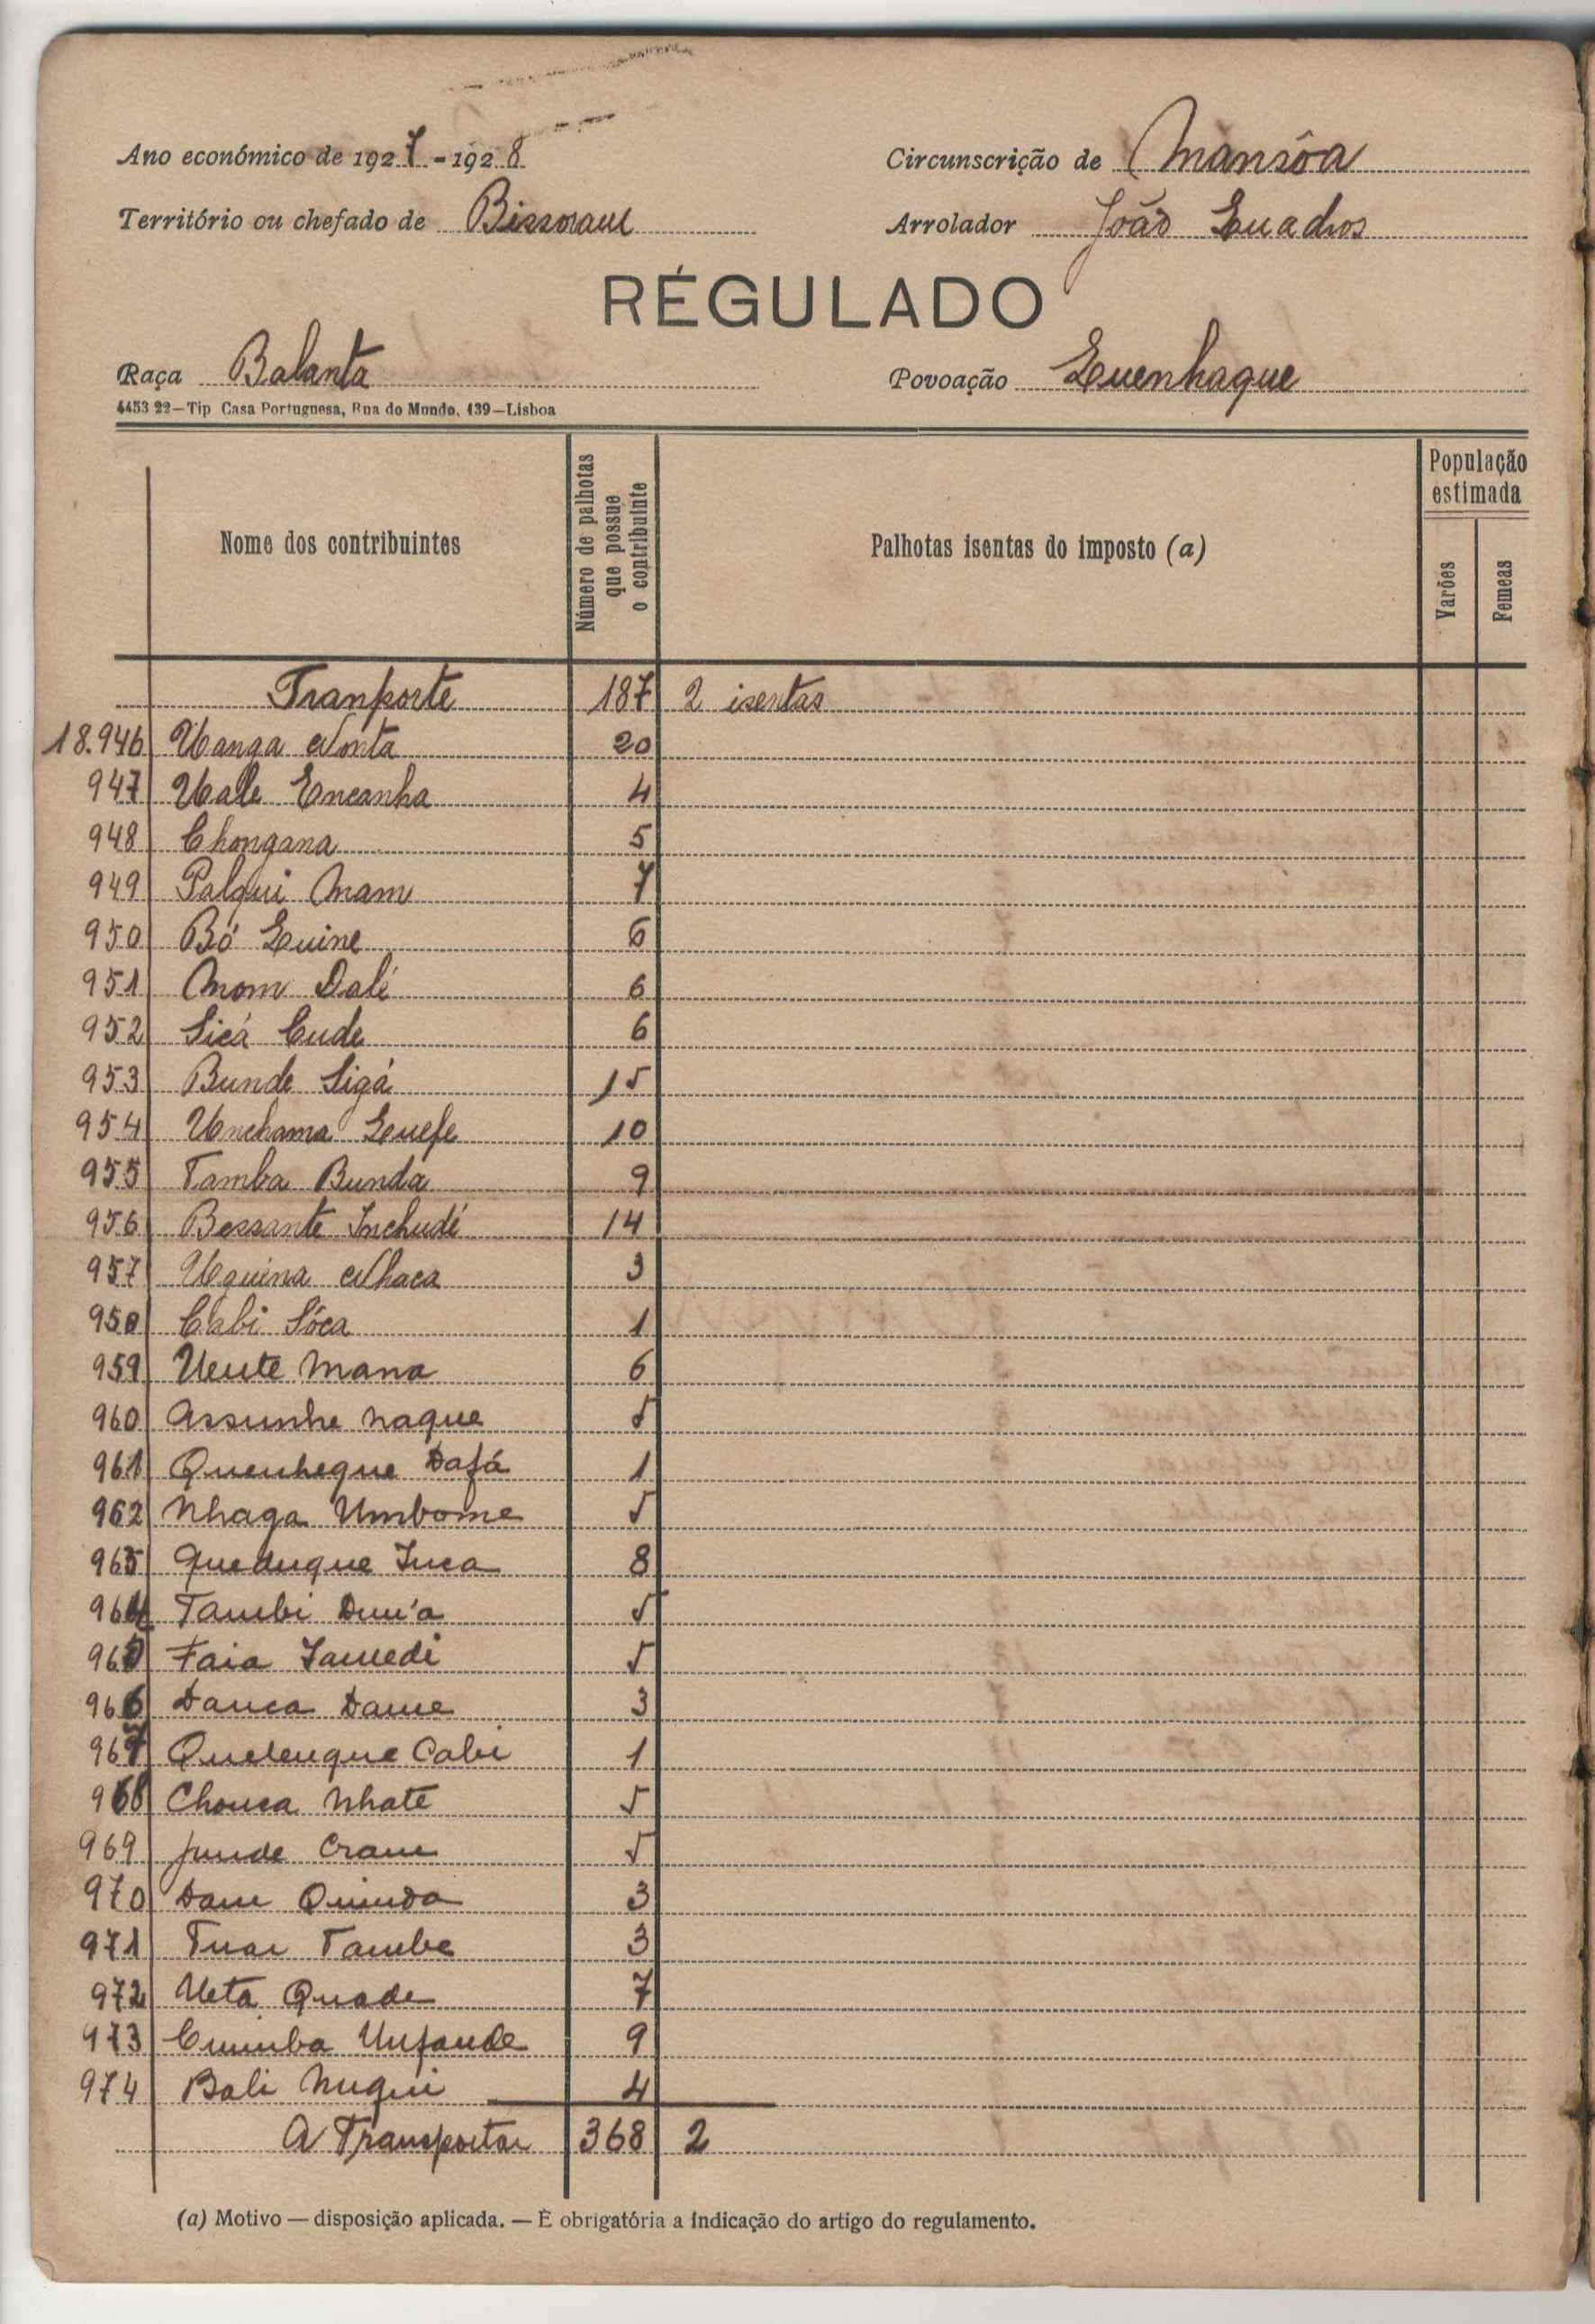 Ano económico de 1927-1928 Circunscrição de Mansôa
Território ou chefado de Bissoraul Arrolador João Quadros
RÉGULADO
Raça Balanta Povoação Quenhaque
4453 22—Tip Casa Portuguesa, Rua do Mundo, 139—Lisboa
Nome dos contribuintes
Número de palhotas que possue o contribuinte
Palhotas isentas do imposto (a)
População estimada
Varões
Femeas
Tranporte 187 2 isentas
18.946 Uanga Nonta 20
947 Uale Encanha 4
948 Chongana 5
949 Palqui Mam 7
950 Bó Quine 6
951 Mom Dalé 6
952 Sicá Cude 6
953 Bunde Sigá 15
954 Unchama Quefe 10
955 Tamba Bunda 9
956 Bessante Inchudé 14
957 Uquina Nhaca 3
958 Cabi Sóca 1
959 Ueute Mana 6
960 Assunhe Naque 5
961 Quenheque Dafá 1
962 Nhaga Umbome 5
963 Queduque Inca 8
964 Tambi 5
965 Faia 5
966 Danca Dame 3
967 Quelenque Cabi 1
968 Chonca Nhate 5
969 Junde Cram 5
970 Dam Quinda 3
971 Tuar Tambe 3
972 Ueta Quade 7
973 Cumba Unfande 9
974 Bali Nuqui 4
A Transportar 368 2
(a) Motivo — disposição aplicada. — É obrigatória a indicação do artigo do regulamento.